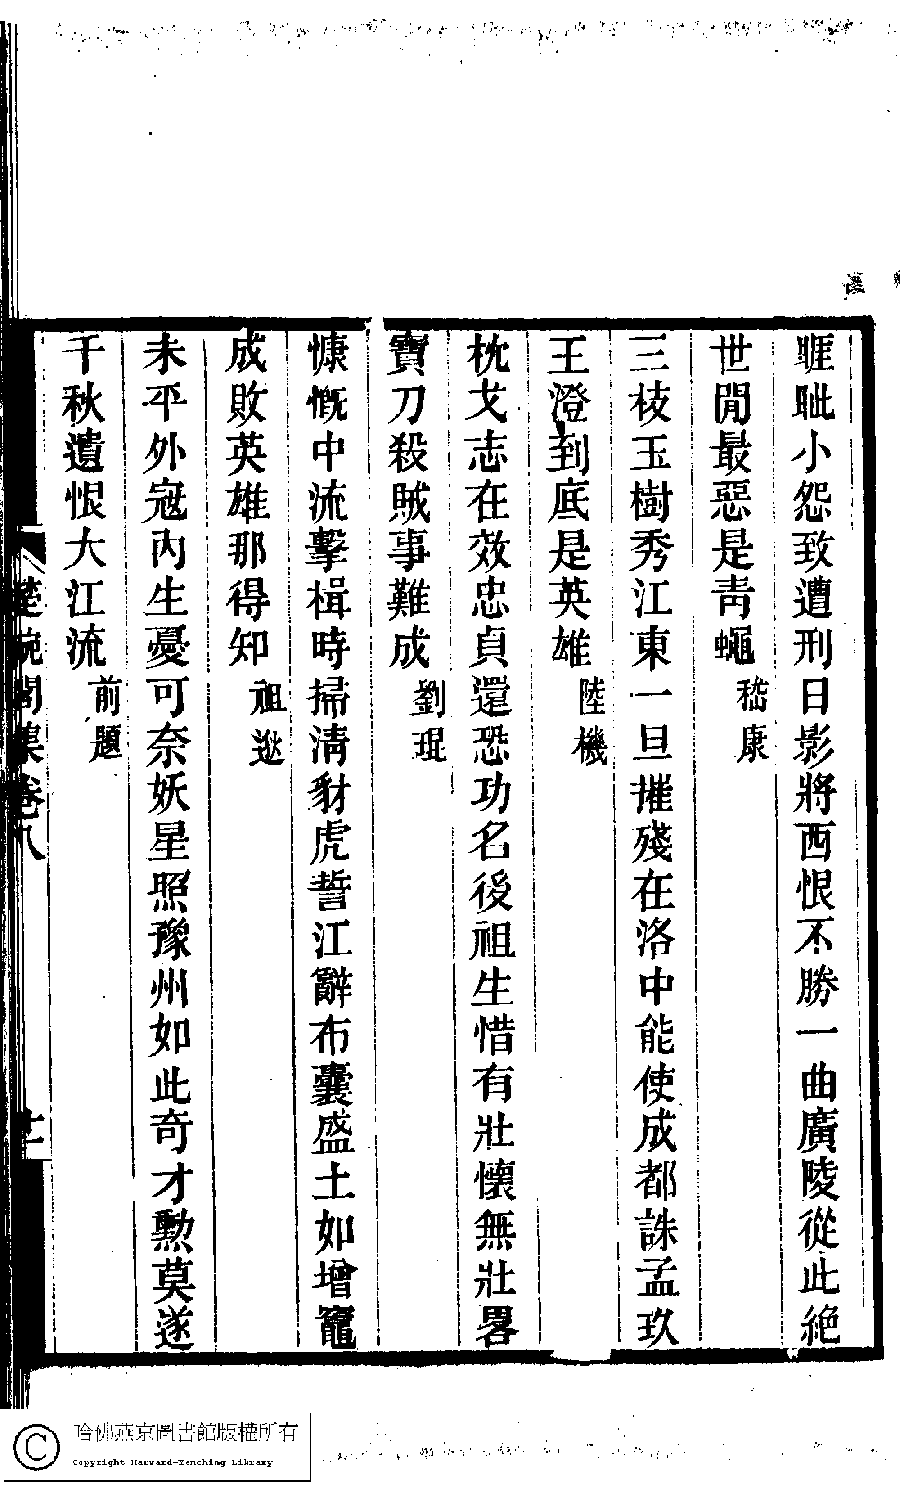 睚眦小怨致遭刑日影將西恨不勝一曲廣陵從此絕
世閒最惡是靑蠅嵇康
三枝玉樹秀江東一旦摧殘在洛中能使成都誅孟玖
王澄到底是英雄陸機
枕戈志在效忠貞還恐功名後祖生惜有壯懷無壯畧
寶刀殺賊事難成劉琨
慷慨中流擊楫時掃淸豺虎誓江辭布囊盛土如增竈
成敗英雄那得知祖逖
未平外寇內生憂可奈妖星照豫州如此奇才勲莫遂
千秋遺恨大江流前題
閣集卷八
十二
哈佛燕京圖書館版權所有
Copyright Harvard-Yenching Library